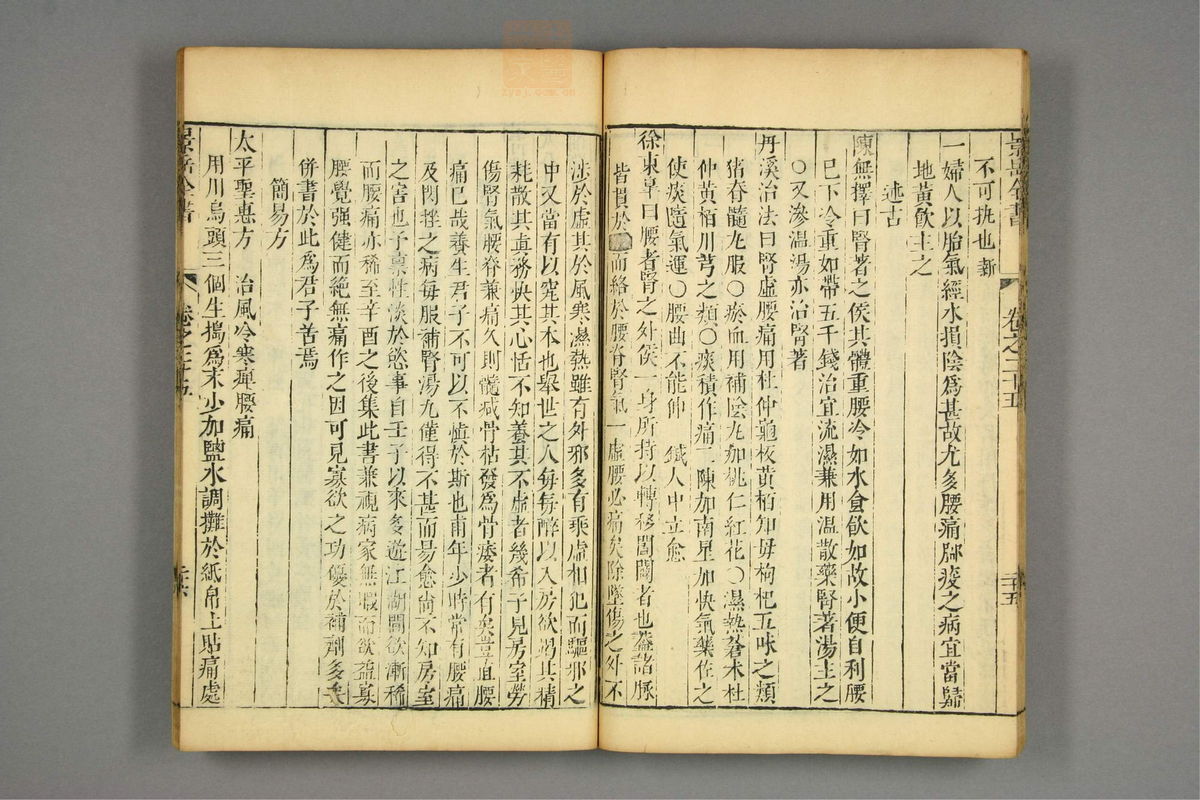 景岳全書
卷之二十五
二十五
不可執也新
一婦人以胎氣經水損陰爲甚故尤多腰痛脚痠之病宜當歸
地黃飲主之
述古
陳無擇曰腎著之候其體重腰冷如水食飲如故小便自利腰
已下冷重如帶五千錢治宜流濕兼用溫散藥腎著湯主之
○又滲濕湯亦治腎著
丹溪治法曰腎虛腰痛用杜仲龜板黃栢知母枸杞五味之類
猪脊髓丸服○瘀血用補陰丸加桃仁紅花○濕熱蒼术杜
仲黃栢川芎之類○痰積作痛二陳加南星加快氣藥佐之
使痰隨氣運○腰曲不能伸 鍼人中立愈
徐東皐曰腰者腎之外候一身所恃以轉移闔闢者也蓋諸脉
皆貫於而絡於腰脊腎氣一虛腰必痛矣除墜傷之外不
涉於虛其於風寒濕熱雖有外邪多有乘虛相犯而驅邪之
中又當有以究其本也舉世之人每每醉以入房欲竭其精
耗散其真務快其心恬不知養其不虛者幾希予見房室勞
傷腎氣腰脊兼痛久則髓減骨枯發爲骨痿者有矣豈直腰
痛已哉養生君子不可以不慎於斯也甫年少時常有腰痛
及閃挫之病每服補腎湯丸僅得不甚而易愈尚不知房室
之害也予禀性淡於慾事自壬子以來多遊江湖間欲漸稀
而腰痛亦稀至辛酉之後集此書兼視病家無暇而欲益寡
腰覺强健而絶無痛作之因可見寡欲之功優於補劑多矣
併書於此爲君子苦焉
簡易方
太平聖惠方 治風冷寒痺腰痛
用川烏頭三個生搗爲末少加鹽水調攤於紙帛上貼痛處
景岳全書
卷之二十五
二十六
zysj.com.cn